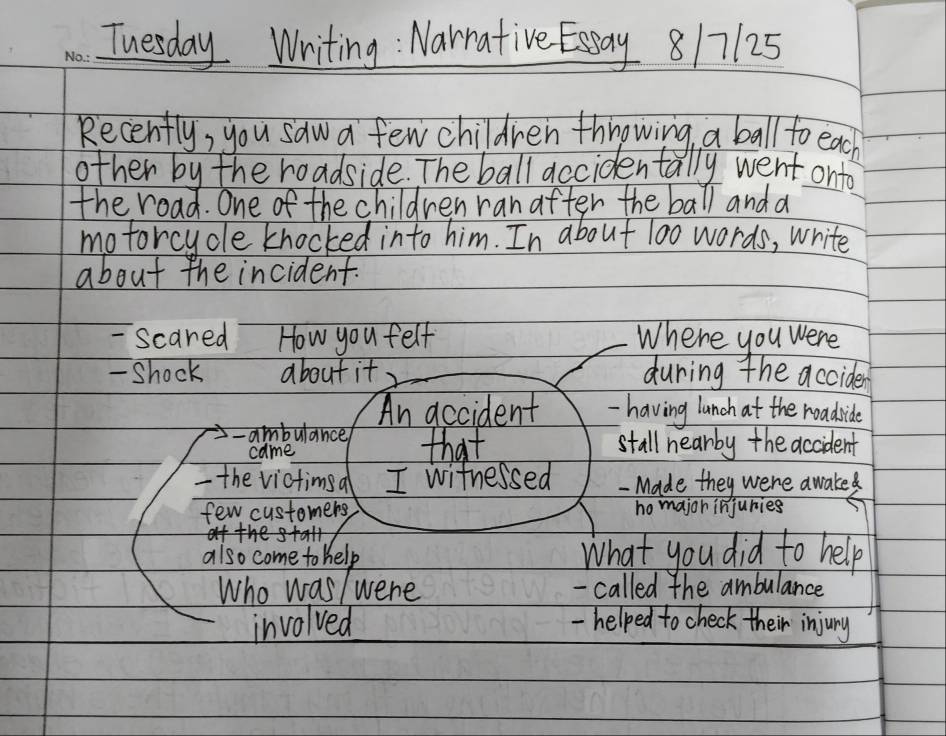 No.: Tuesday Writing: Narrative Essay 8/7/25
Recently, you saw a few children throwing a ball to each
other by the roadside. The ball accidentally went onto
the road. One of the children ran after the ball and a
motorcycle knocked into him. In about 100 words, write
about the incident.
How you felt
about it
- Scared
- Shock
Where you were
during the acciden
- having lunch at the roadside
stall nearby the accident
An accident
that
I witnessed
- ambulance
came
- the victims a
few customers
at the stall
also come to help
Who was, were
involved
- Made they were awake &
no major injuries
What you did to help
- called the ambulance
- helped to check their injury